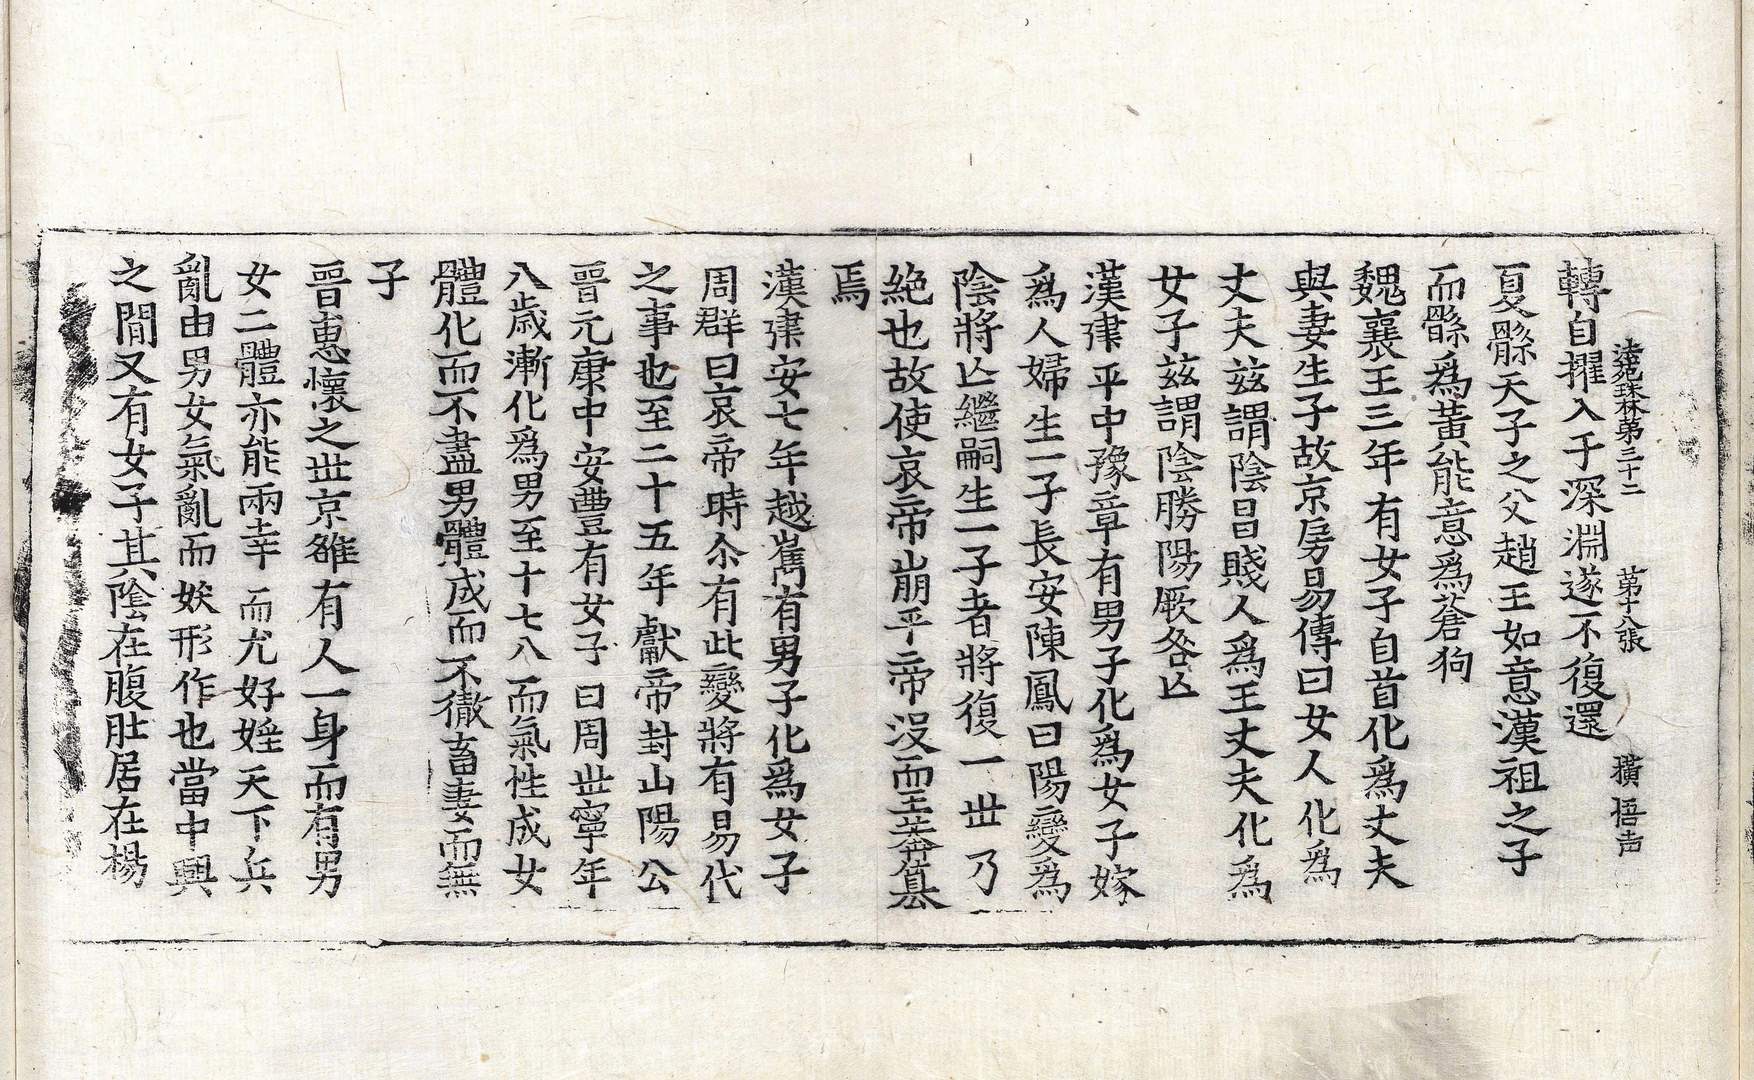 法苑珠林第三十二 第十八張 橫 悟志
轉自擢入于深淵遂不復還
夏縣天子之父趙王如意漢祖之子
而縣爲黃能意爲蒼狗
魏襄王三年有女子自首化爲丈夫
與妻生子故京房易傳曰女人化爲
丈夫兹謂陰昌賤人爲王丈夫化爲
女子兹謂陰勝陽厥咎亾
漢建平中豫章有男子化爲女子嫁
爲人婦生一子長安陳鳳曰陽變爲
陰將亾繼嗣生一子者將復一丗乃
絶也故使哀帝崩平帝没而王莽篡
焉
漢建安七年越嶲有男子化爲女子
周群曰哀帝時尒有此變將有易代
之事也至二十五年獻帝封山陽公
晉元康中安豐有女子曰周丗寧年
八歲漸化爲男至十七八而氣性成女
體化而不盡男體成而不徹畜妻而無
子
晉惠懷之丗京雒有人一身而有男
女二體亦能兩幸而尤好婬天下兵
亂由男女氣亂而妖形作也當中興
之間又有女子其陰在腹肚居在楊